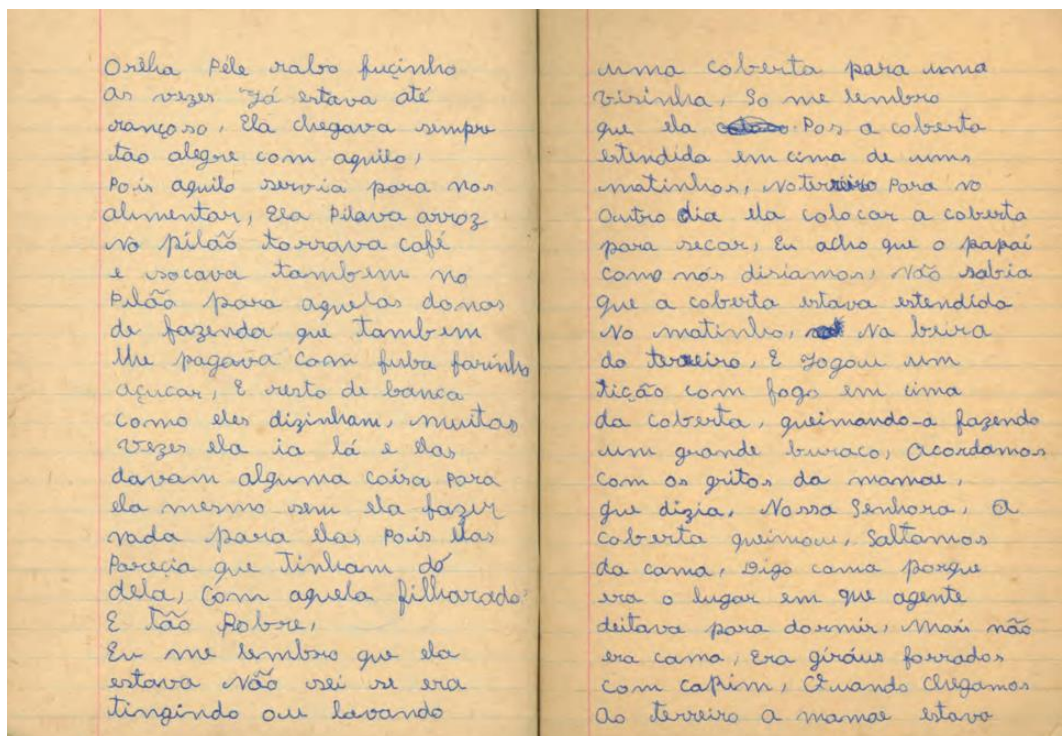 Orêlha Péle rabo fuçinho
as vezes Já estava até
rançoso, Ela chegava sempre
tão alegre com aquilo,
Pois aquilo servia para nos
alimentar, Ela Pilava arroz
no pilão torrava café
e socava tambem no
Pilão para aquelas donas
de fazenda que tambem
lhe pagava com fuba farinha
açucar, E resto de banca
como eles dizinham, muitas
vezes ela ia lá e elas
davam alguma coisa para
ela mesmo sem ela fazer
nada para elas Pois elas
Parecia que Tinham dó
dela, com aquela filharada
E tão Pobre,
Eu me lembro que ela
estava Não sei se era
tingindo ou lavando
uma coberta para uma
visinha, So me lembro
que ela Pos a coberta
estendida em cima de uns
matinhos, No terreiro Para no
outro dia ela colocar a coberta
para secar, Eu acho que o papai
como nós disiamos, Não sabia
que a coberta estava estendida
No matinho, Na beira
do terreiro, E Jogou um
tição com fogo em cima
da coberta, queimando-a fazendo
um grande buraco, Acordamos
com os gritos da mamae,
que dizia, Nossa Senhora, A
coberta queimou, Saltamos
da cama, Digo cama porque
era o lugar em que agente
deitava para dormir, Mais não
era cama, Era giráus forrados
com caPim, Quando chegamos
ao terreiro a mamae estava